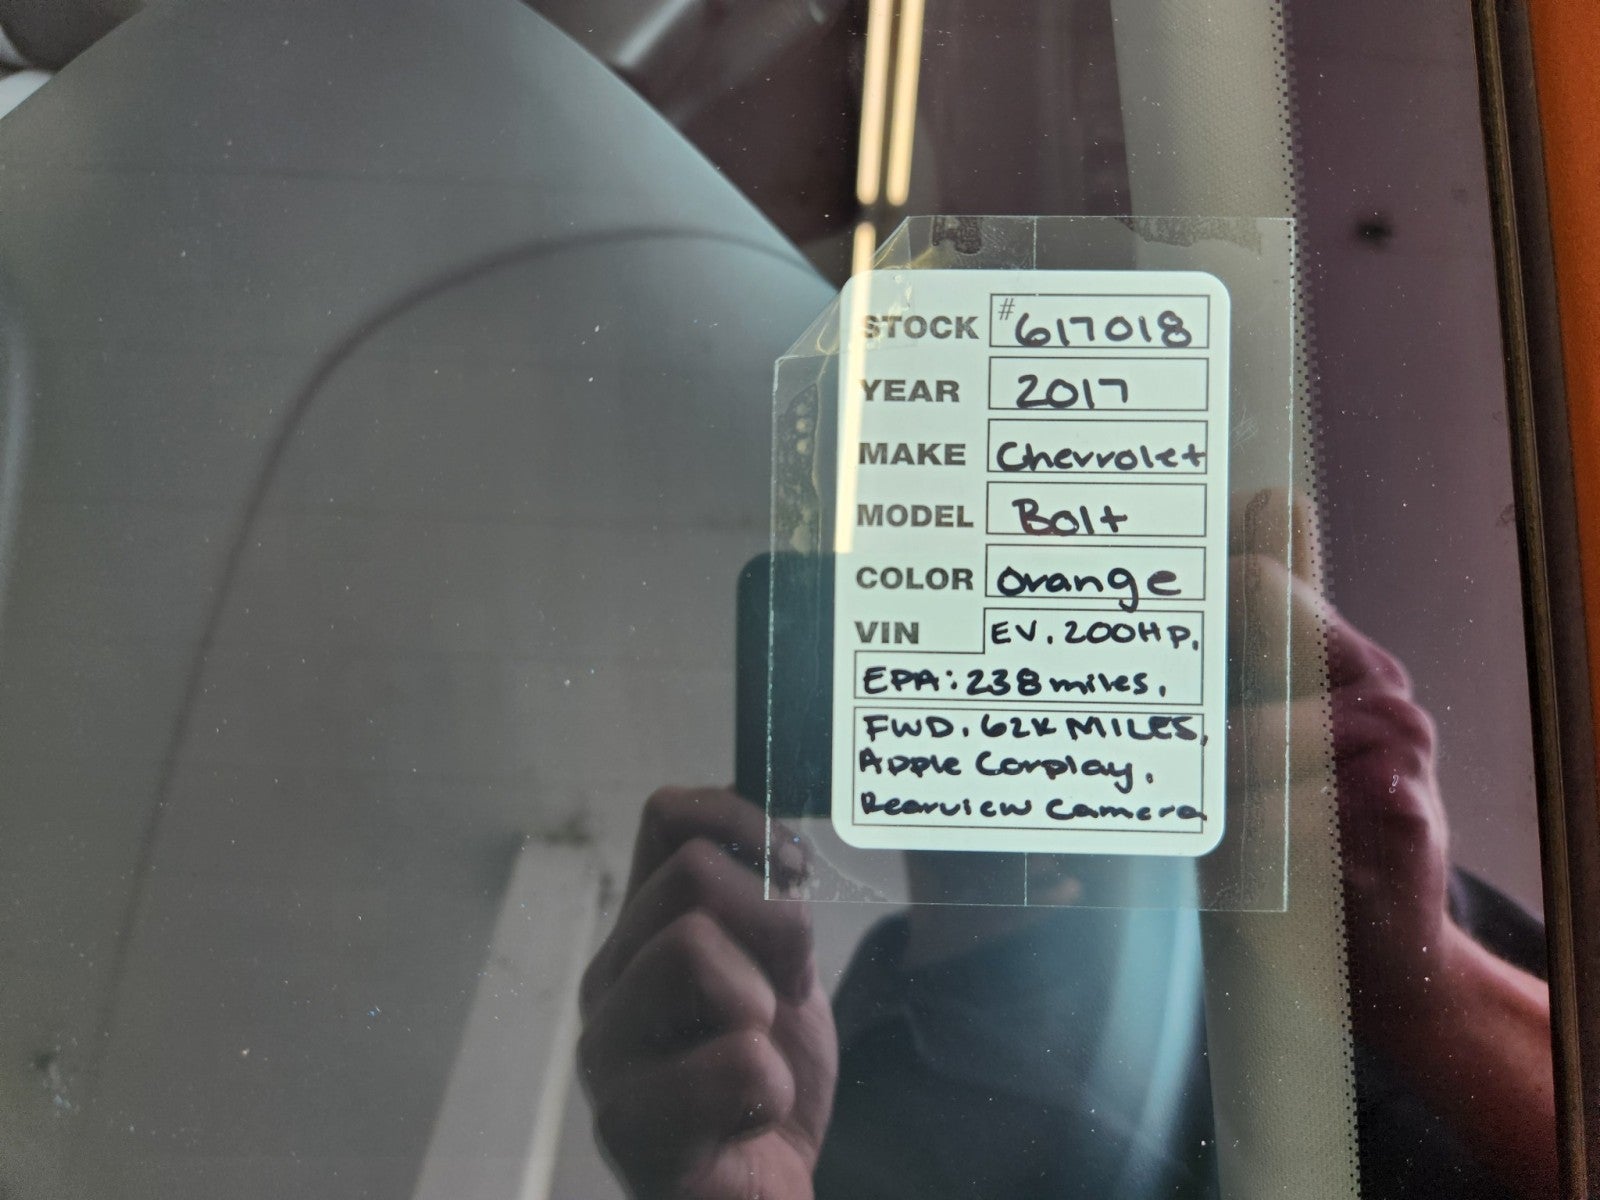 STOCK #617018
YEAR 2017
MAKE Chevrolet
MODEL Bolt
COLOR Orange
VIN EV. 200HP.
EPA: 238 miles.
FWD. 62K MILES,
Apple Carplay.
Rearview Camera